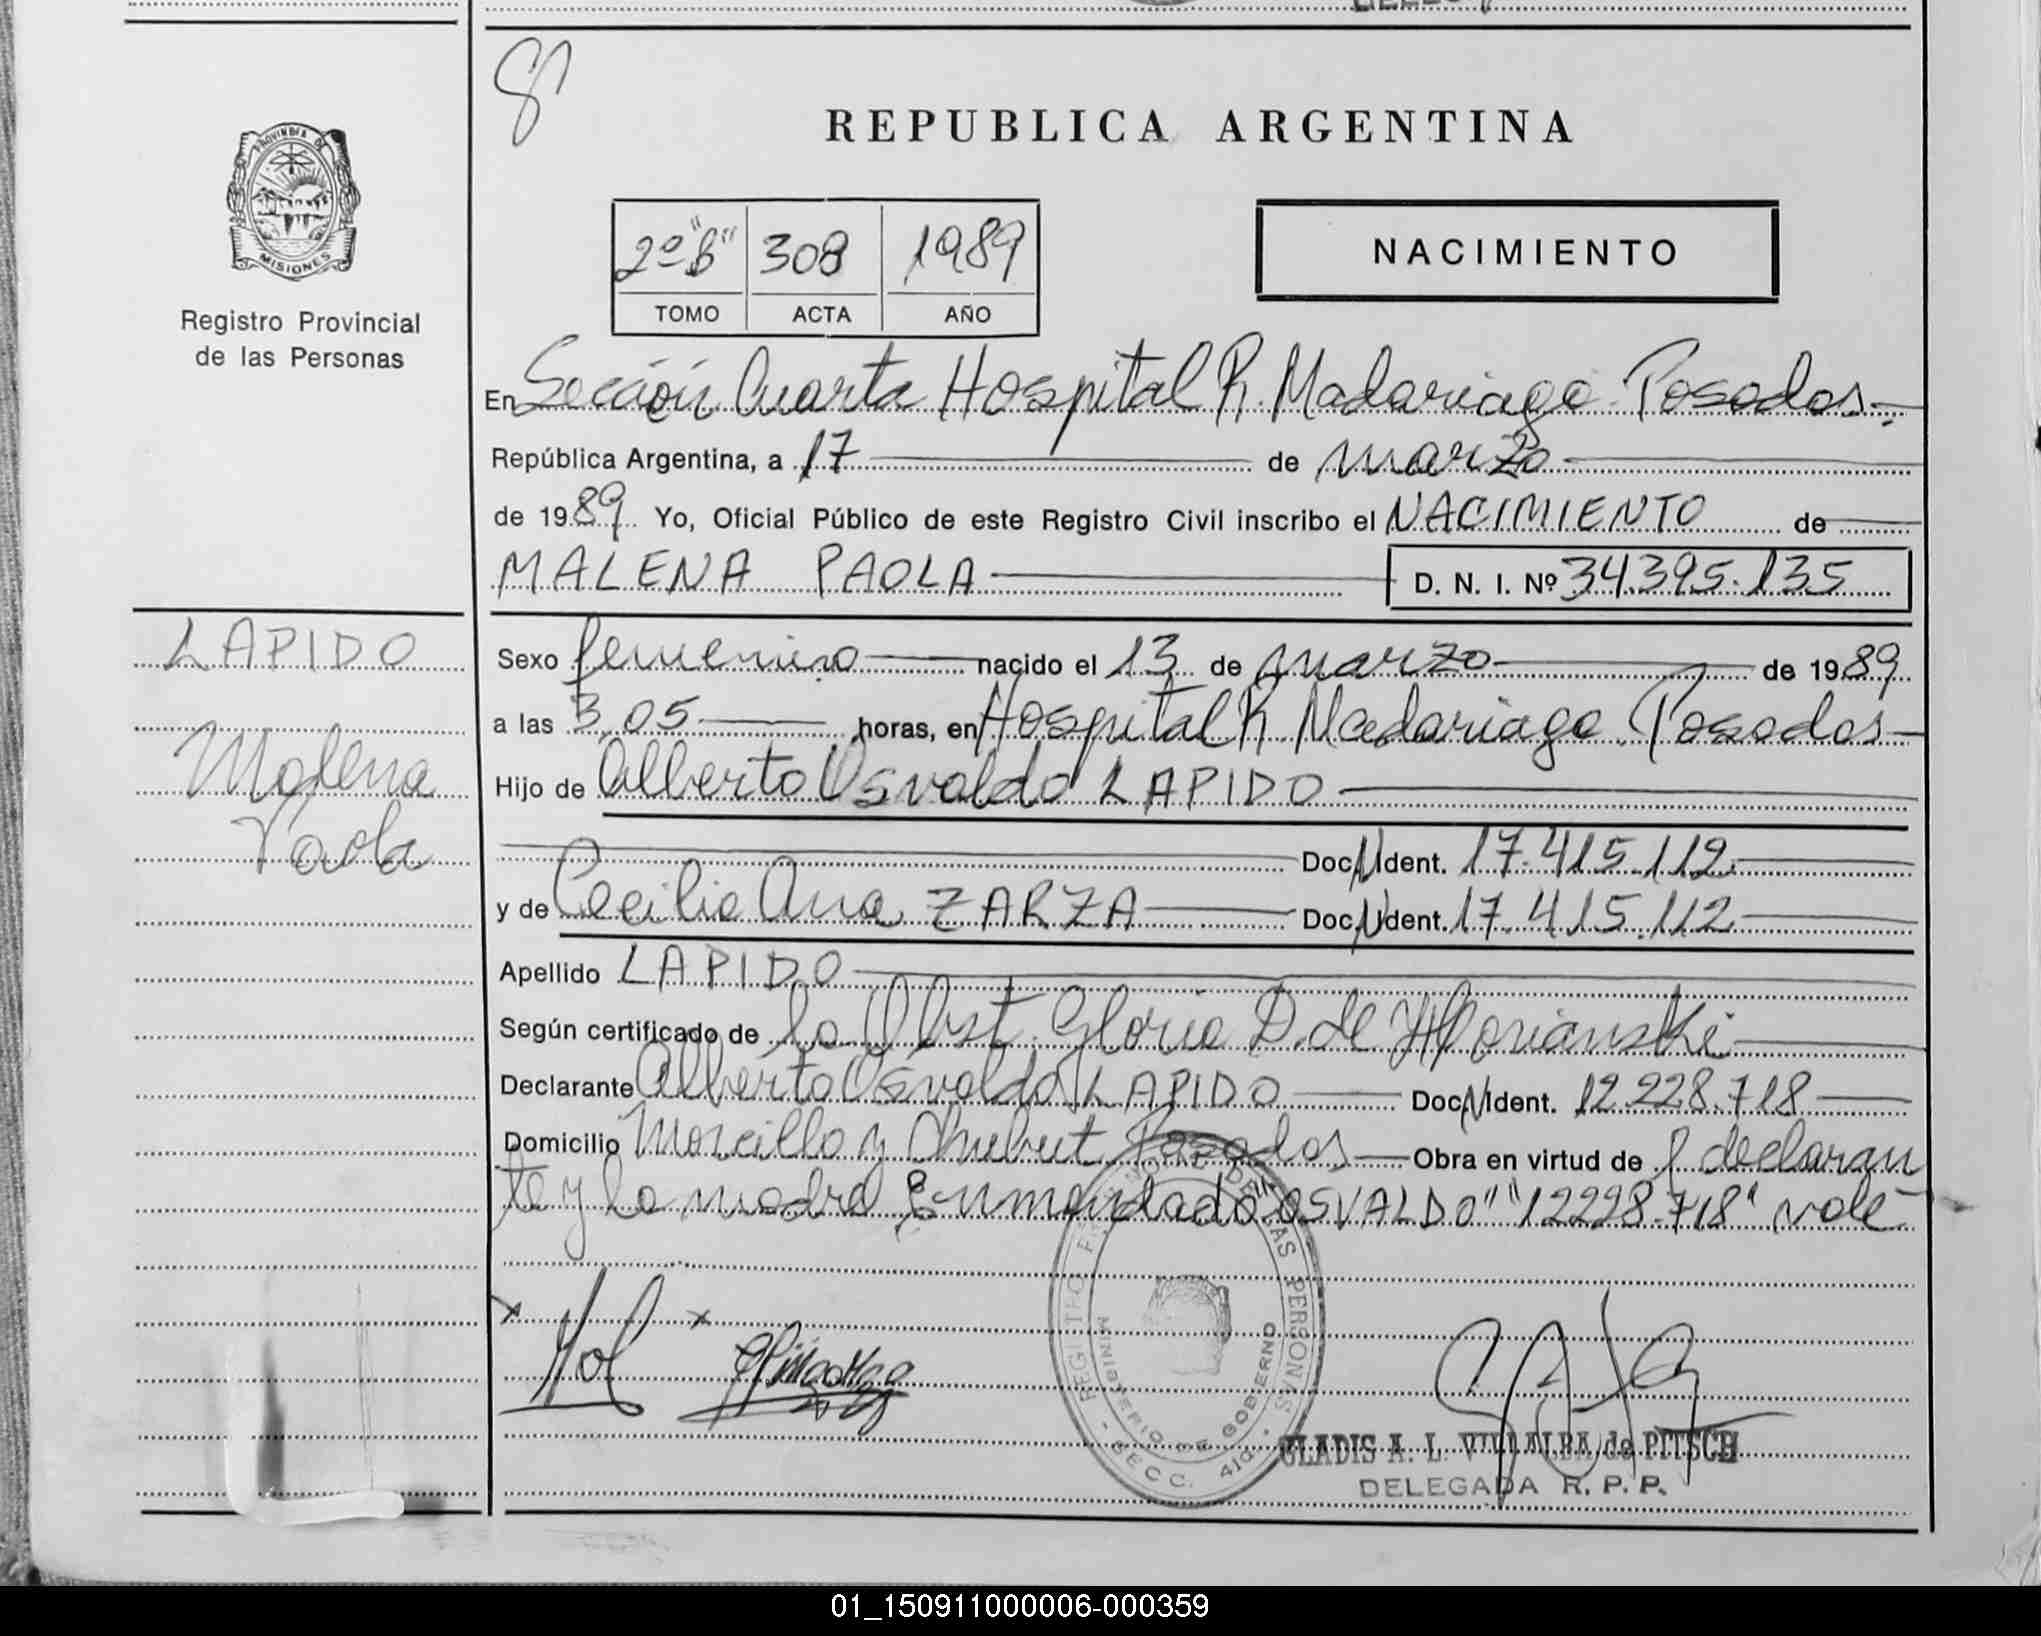 REPUBLICA ARGENTINA
PROVINCIA DE
MISIONES
Registro Provincial
de las Personas
2º "B" 308 1989
TOMO ACTA AÑO
NACIMIENTO
En Sección Cuarta Hospital R. Madariaga Posadas.-
República Argentina, a 17 de marzo
de 1989 Yo, Oficial Público de este Registro Civil inscribo el NACIMIENTO de
MALENA PAOLA D. N. I. Nº 34.395.135
LAPIDO
Malena
Paola
Sexo femenino nacido el 13 de marzo de 1989
a las 3,05 horas, en Hospital R. Madariaga Posadas
Hijo de Alberto Osvaldo LAPIDO
Doc. N Ident. 17.415.112
y de Cecilia Ana ZARZA Doc. N Ident. 17.415.112
Apellido LAPIDO
Según certificado de la Obst. Gloria D. de
Declarante Alberto Osvaldo LAPIDO Doc. N Ident. 12.228.718
Domicilio Morcillo y Chubut Posadas Obra en virtud de declaran
te y la madre Enmendado "OSVALDO" "12228.718" vale
REGISTRO DE LAS PERSONAS
MINISTERIO DE GOBIERNO
- SECC. 4ta. -
GLADIS A. L. VILLALBA de PITSCH
DELEGADA R. P. P.
01_150911000006-000359